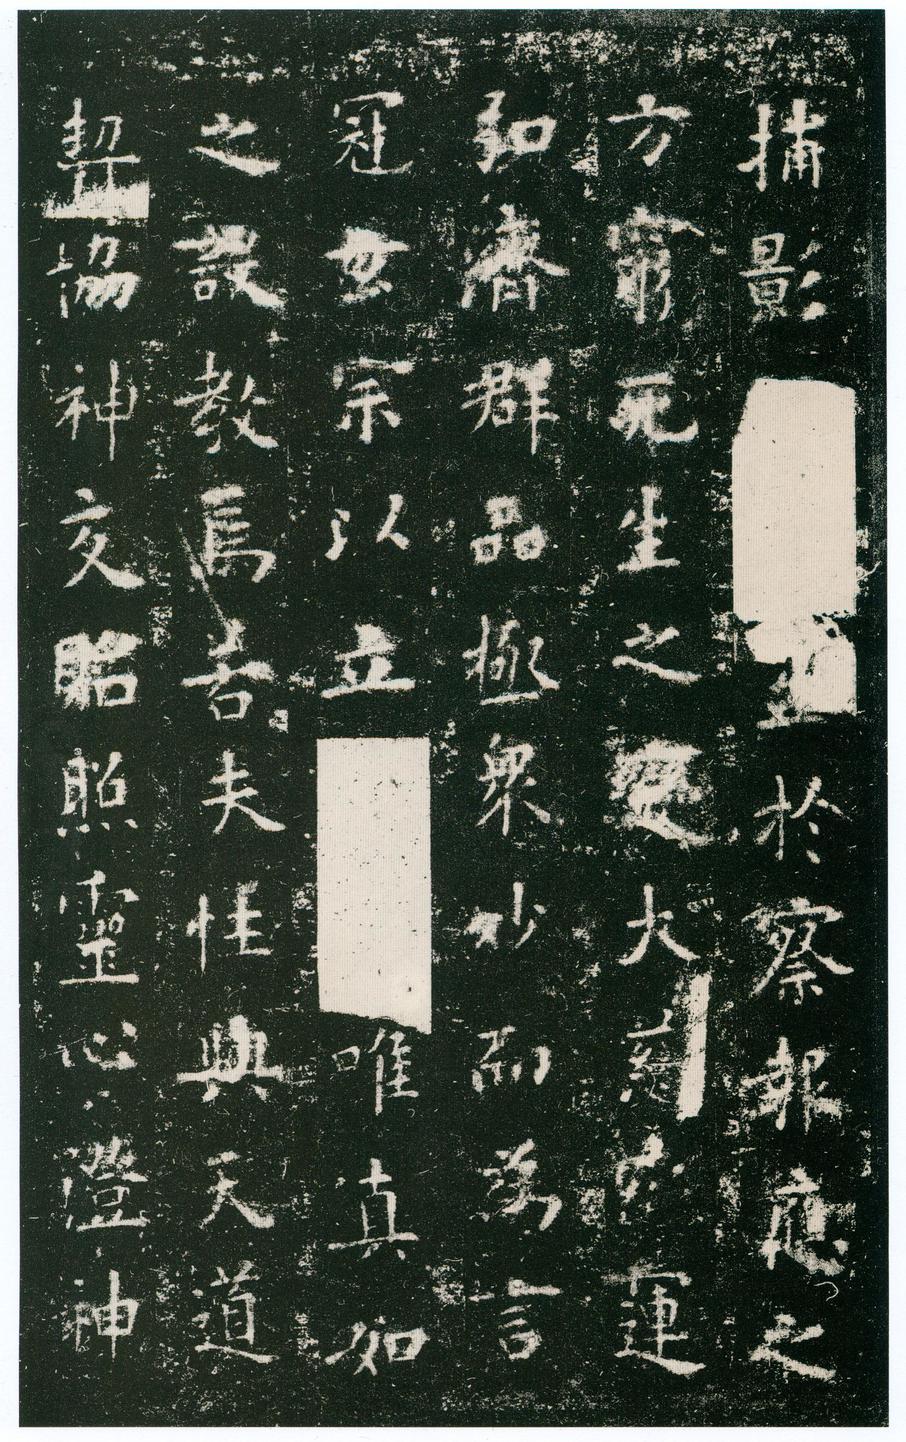 捕影於察報應之
方窮死生之變大慈運
弘濟群品極眾妙而為言
冠玄宗以立唯真如
之設教焉若夫性與天道
契協神交昭照靈心澄神